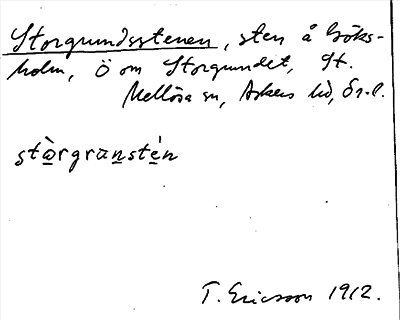 Storgrundsstenen, sten å Böks-
holm, Ö om Storgrundet, St.
Mellösa sn, Askers hd, Ör. l.
stòrgranstén
T. Ericsson 1912.